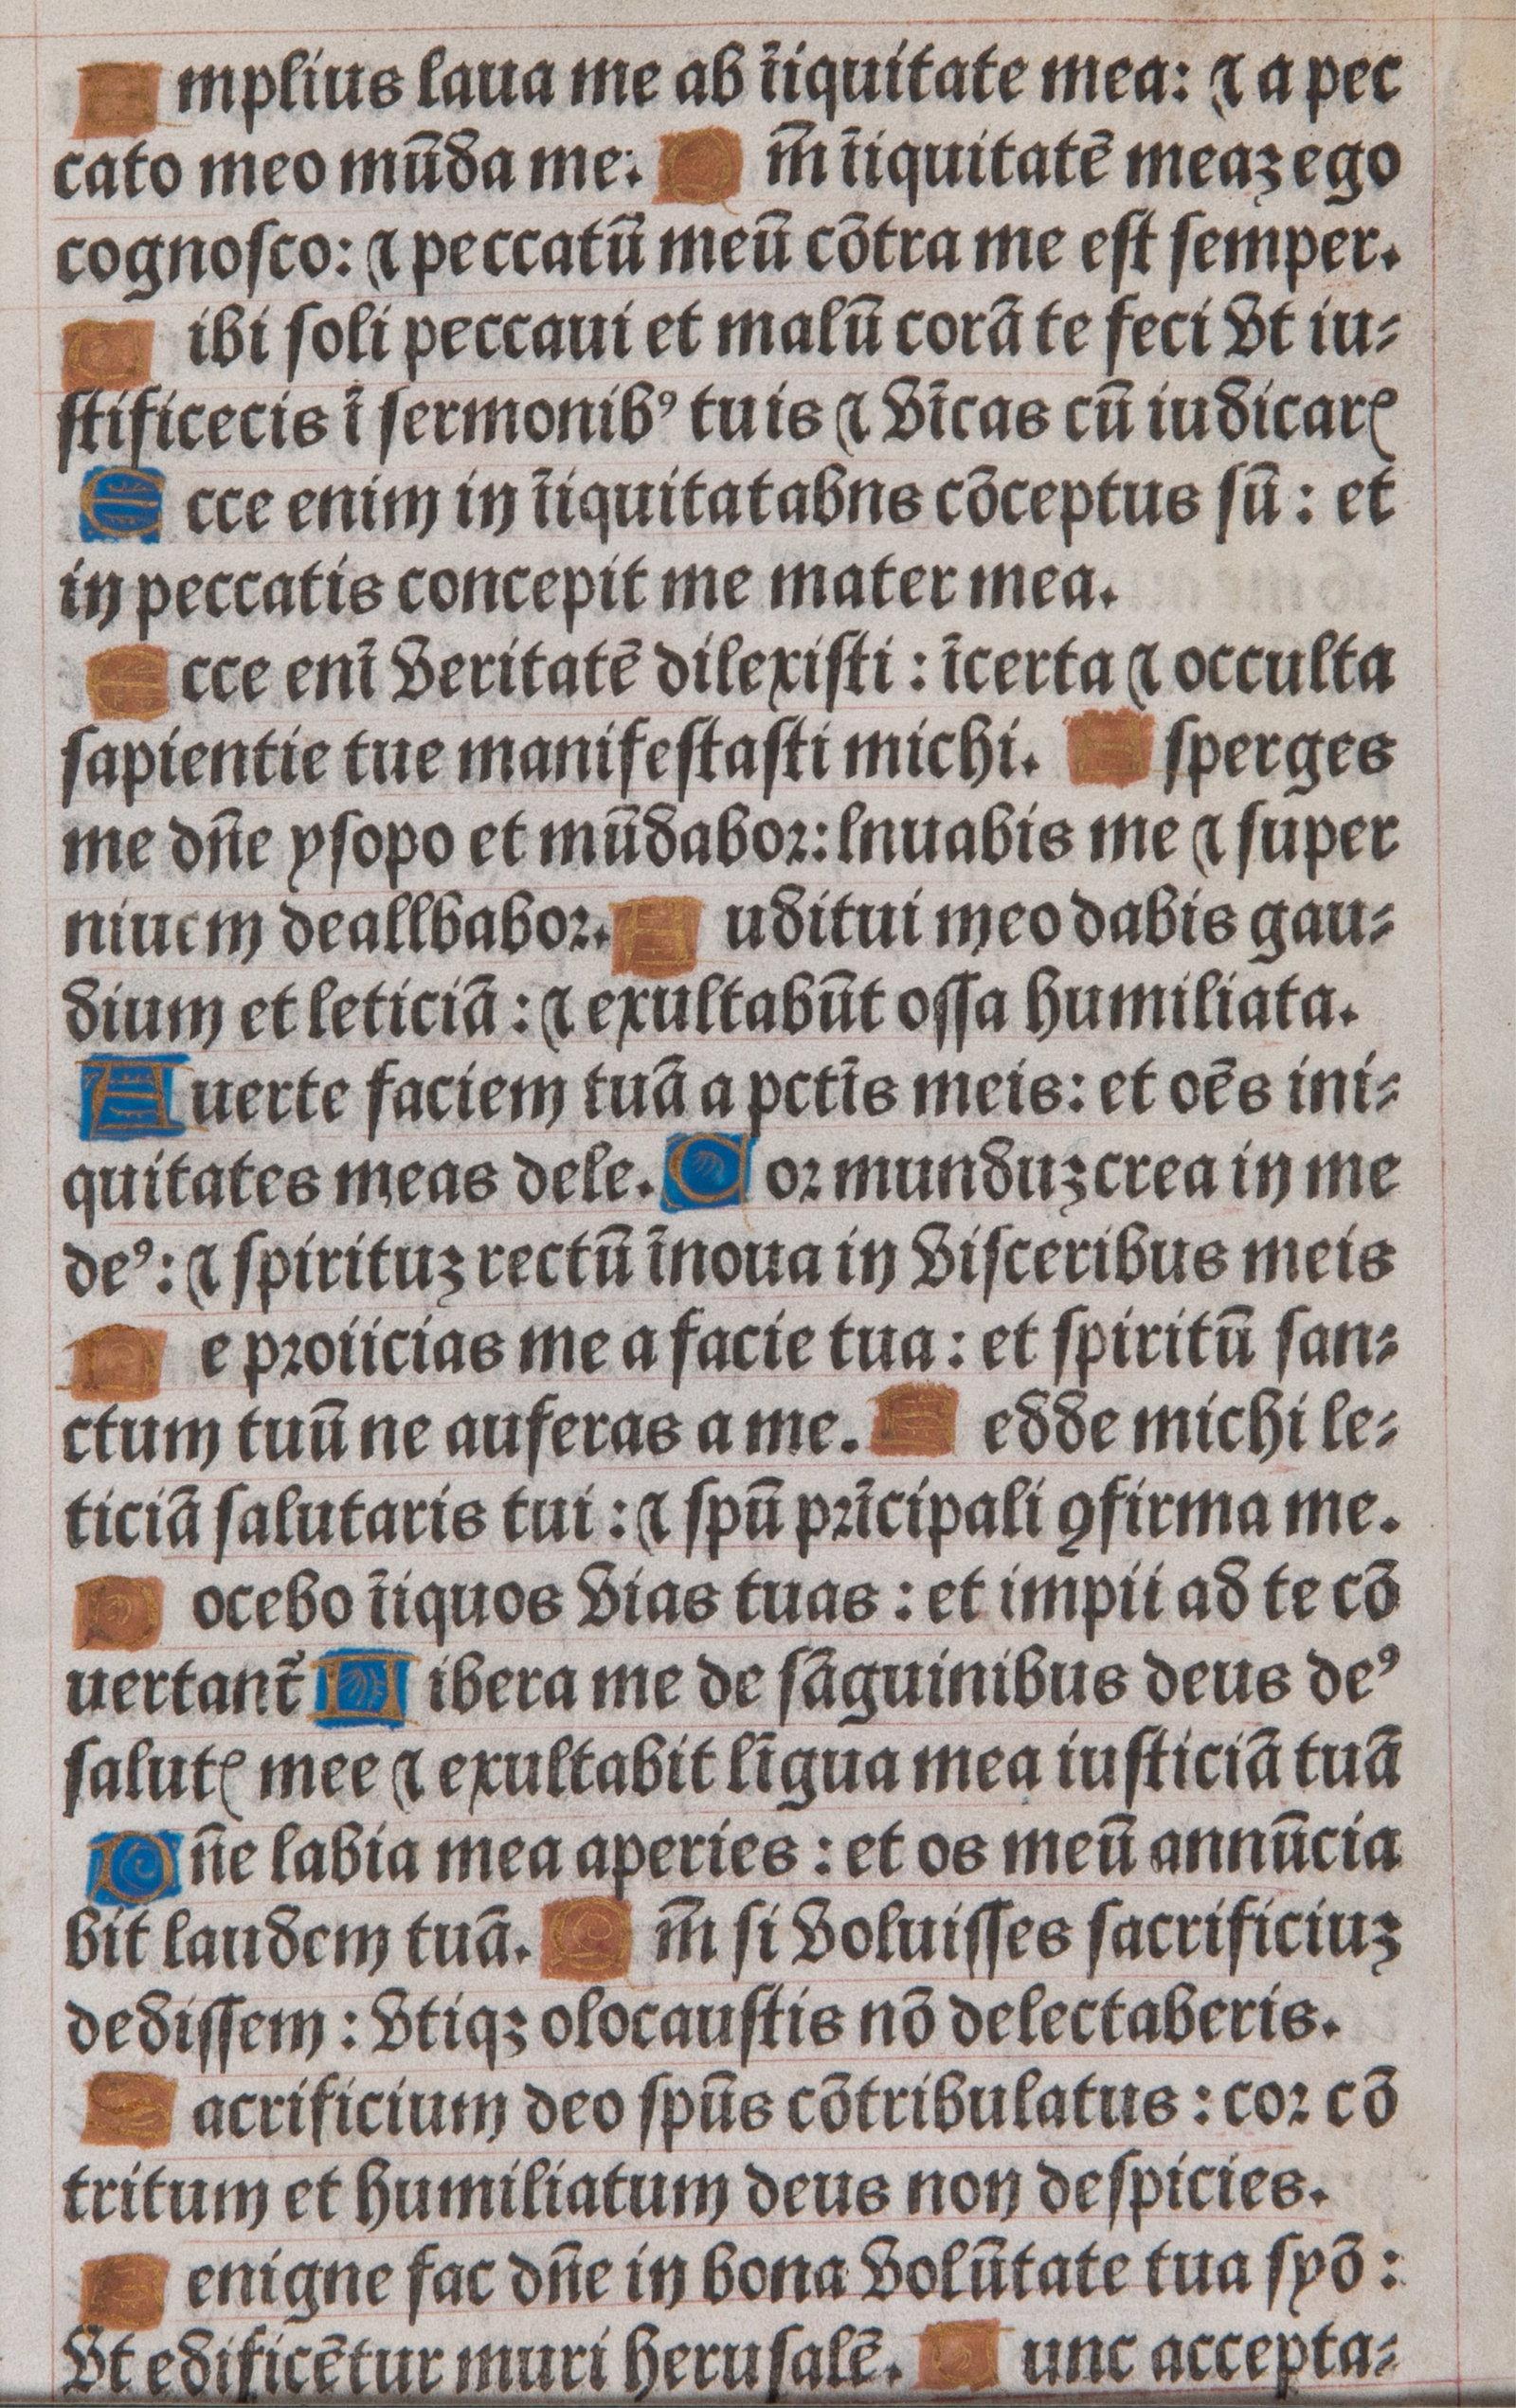 Amplius laua me ab īiquitate mea: ⁊ a pec
cato meo mūda me. Qm̄ īiquitatē meaꝫ ego
cognosco: ⁊ peccatū meū cōtra me est semper.
Tibi soli peccaui et malū corā te feci vt iu-
stificecis ī sermonibꝰ tuis ⁊ vīcas cū iudicarꝭ
Ecce enim in īiquitatabns cōceptus sū : et
in peccatis concepit me mater mea.
Ecce enī veritatē dilexisti : īcerta ⁊ occulta
sapientie tue manifestasti michi. Asperges
me dn̄e ysopo et mūdabor: lnuabis me ⁊ super
niucm deallbabor. Auditui meo dabis gau-
dium et leticiā : ⁊ exultabūt ossa humiliata.
Auerte faciem tuā a pctīs meis: et oēs ini-
quitates meas dele. Cor munduꝫ crea in me
deꝰ: ⁊ spirituꝫ rectū īnoua in visceribus meis
Ne proiicias me a facie tua : et spiritū san-
ctum tuū ne auferas a me. Redde michi le-
ticiā salutaris tui : ⁊ spū prīcipali ꝯfirma me.
Docebo īiquos vias tuas : et impii ad te cō
uertant̄ Libera me de sāguinibus deus deꝰ
salutꝭ mee ⁊ exultabit līgua mea iusticiā tuā
Dn̄e labia mea aperies : et os meū annūcia
bit laudcm tuā. Qm̄ si voluisses sacrificiuꝫ
dedissem : vtiqꝫ olocaustis nō delectaberis.
Sacrificium deo spūs cōtribulatus : cor cō
tritum et humiliatum deus non despicies.
Benigne fac dn̄e in bona volūtate tua syō :
vt edificētur muri herusalē. Tunc accepta-